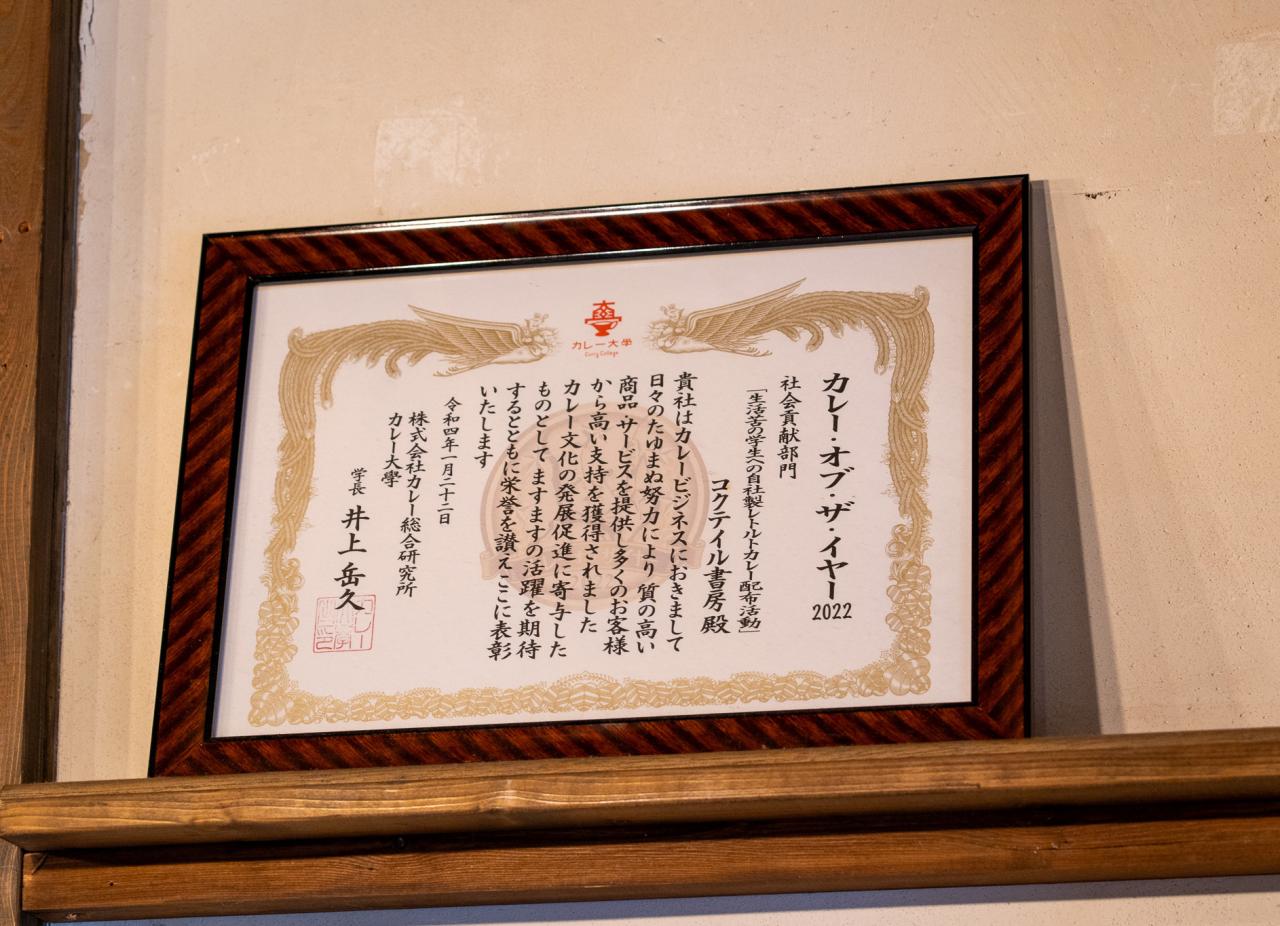 カレー大學
Curry College
カレー・オブ・ザ・イヤー2022
社会貢献部門
「生活苦の学生への自社製レトルトカレー配布活動」
コクテイル書房殿
貴社はカレービジネスにおきまして
日々のたゆまぬ努力により質の高い
商品・サービスを提供し多くのお客様
から高い支持を獲得されました
カレー文化の発展促進に寄与した
ものとしてますますの活躍を期待
するとともに栄誉を讃えここに表彰
いたします
令和四年一月二十二日
株式会社カレー総合研究所
カレー大學
学長 井上岳久